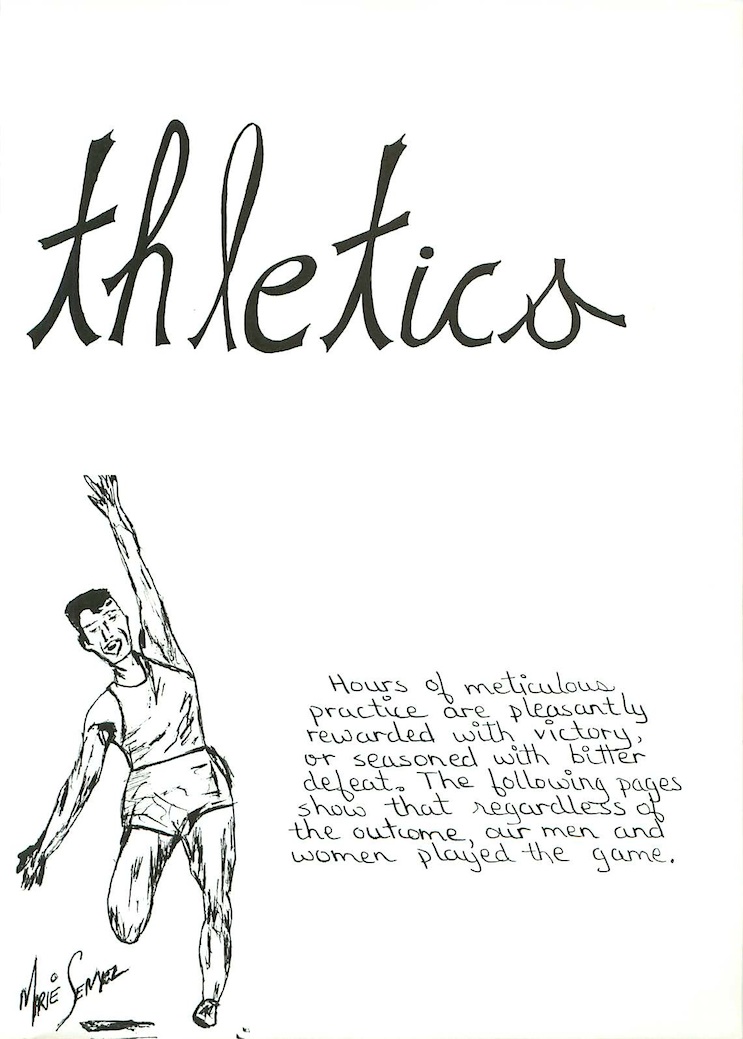 thletics
Hours of meticulous
practice are pleasantly
rewarded with victory,
or seasoned with bitter
defeat. The following pages
show that regardless of
the outcome, our men and
women played the game.